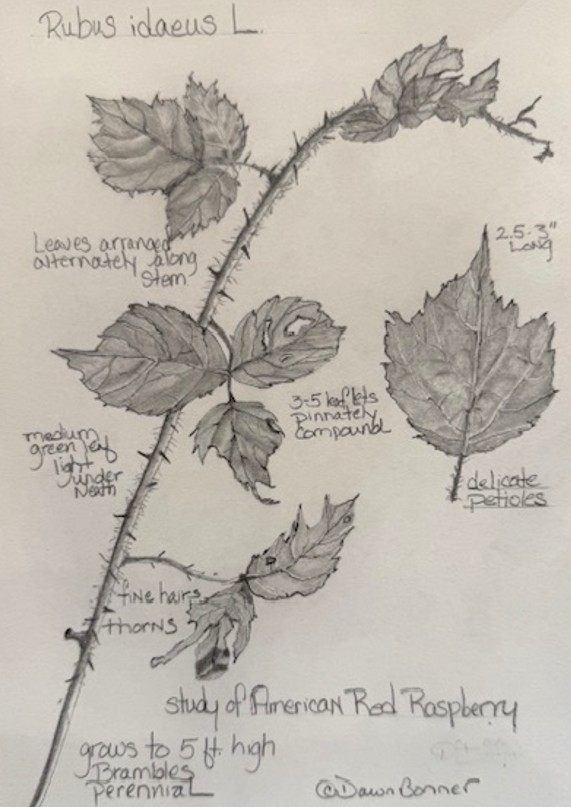 Rubus idaeus L.
2.5-3"
Long
Leaves arranged
alternately along
stem
3-5 leaflets
pinnately
compound
medium
green leaf
light
under
neath
delicate
petioles
fine hairs
thorns
study of American Red Raspberry
grows to 5 ft. high
Brambles
perennial
©Dawn Bonner